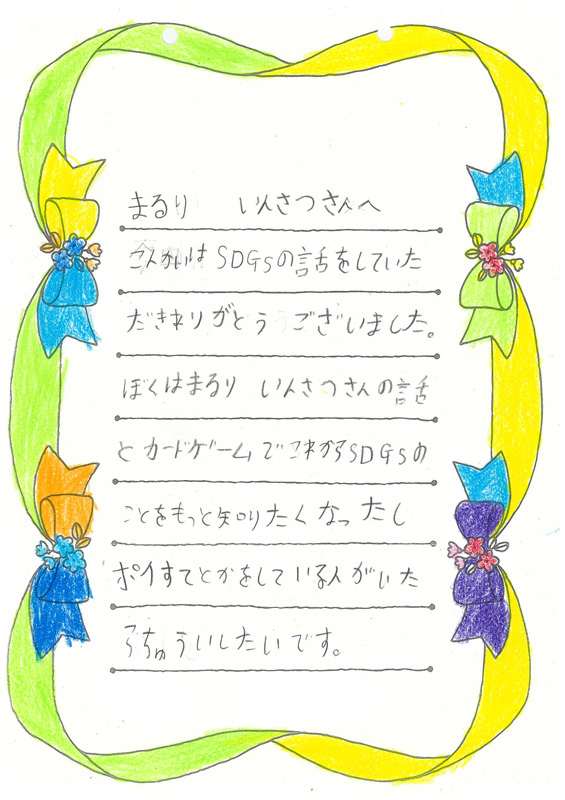 まるり いんさつさんへ
こんかいはSDGsの話をしていた
だきありがとうございました。
ぼくはまるり いんさつさんの話
とカードゲームでこれからSDGsの
ことをもっと知りたくなったし
ポイすてとかをしている人がいた
らちゅういしたいです。